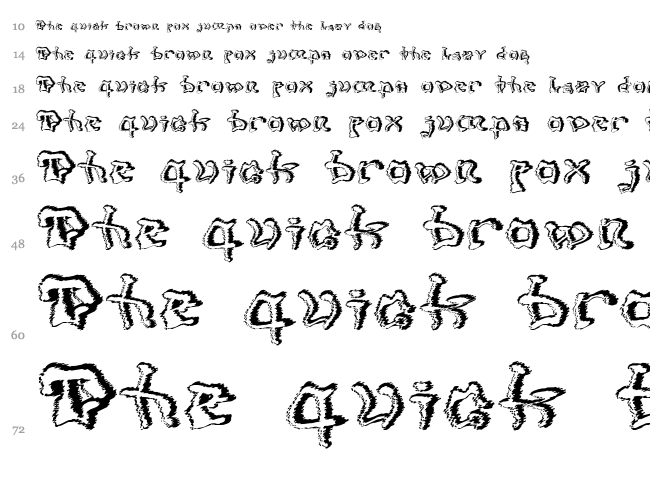 10 The quick brown fox jumps over the lazy dog
14 The quick brown fox jumps over the lazy dog
18 The quick brown fox jumps over the lazy dog
24 The quick brown fox jumps over
36 The quick brown fox ju
48 The quick brown
60 The quick bro
72 The quick